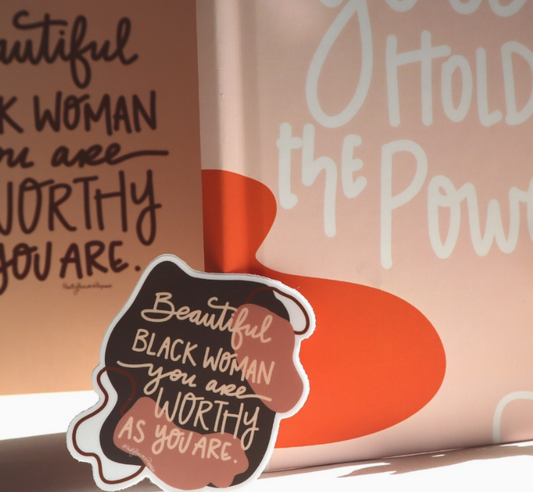 autiful
K WOMAN
ou are
WORTHY
YOU ARE.
you
HOLD
the Powe
Beautiful
BLACK WOMAN
you are
WORTHY
AS YOU ARE.